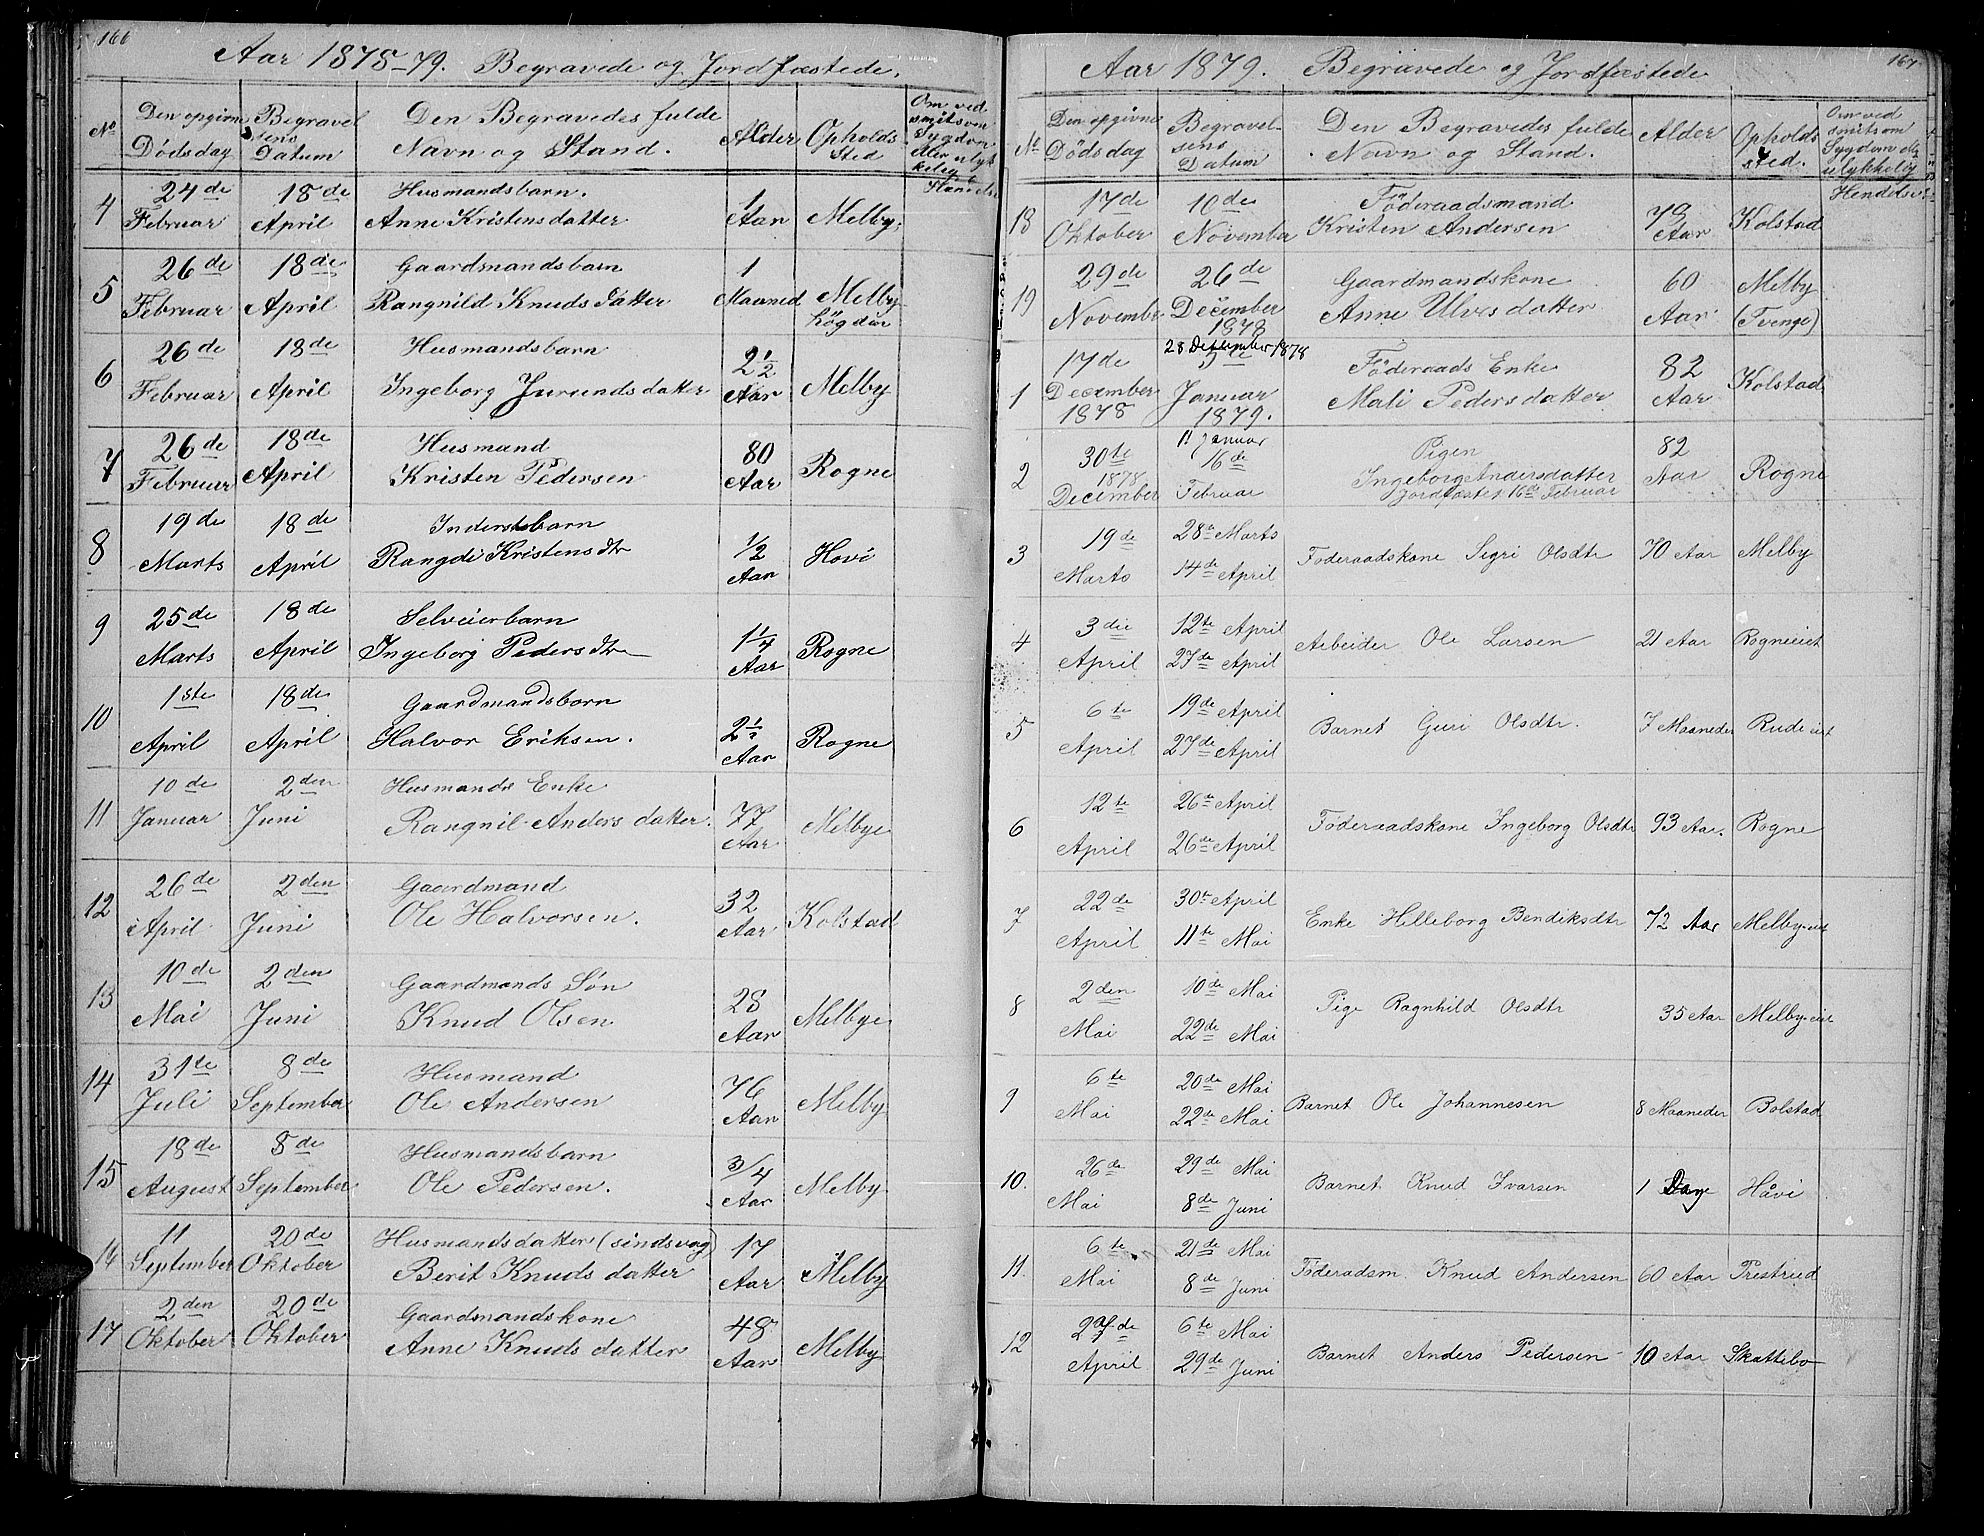 166
Aar 1878-79. Begravede og Jordfæstede.
No
Den opgivne Dødsdag
Begravelsens Datum
Den Begravedes fulde Navn og Stand.
Alder
Opholds Sted
Om ved smitsom Sygdom eller ulykkelig Hændelse
4
24de Februar
18de April
Husmandsbarn.
Anne Kristensdatter
1 Aar
Melby
5
26de Februar
18de April
Gaardmandsbarn
Rangnild Knudsdatter
1 Maaned
Melby
6
26de Februar
18de April
Husmandsbarn
Ingeborg Jurundsdatter
2 1/2 Aar
Melby
7
26de Februar
18de April
Husmand
Kristen Pedersen
80 Aar
Rogne
8
19de Marts
18de April
Inderstbarn
Rangdi Kristensdtr
1/2 Aar
Hovi
9
25de Marts
18de April
Selveierbarn
Ingeborg Pedersdtr
1 1/4 Aar
Rogne
10
1ste April
18de April
Gaardmandsbarn
Halvor Eriksen.
2 1/2 Aar
Rogne
11
10de Januar
2den Juni
Husmands Enke
Rangnil Andersdatter.
77 Aar
Melbye
12
26de April
2den Juni
Gaardmand
Ole Halvorsen.
32 Aar
Kolstad
13
10de Mai
2den Juni
Gaardmands Søn
Knud Olsen
28 Aar
Melbye
14
31te Juli
8de September
Husmand
Ole Andersen
76 Aar
Melby
15
18de August
8de September
Husmandsbarn
Ole Pedersen.
3/4 Aar
Melby
16
11 September
20de Oktober
Husmandsdatter (sindsvag)
Berit Knudsdatter
17 Aar
Melby
17
2den Oktober
20de Oktober
Gaardmandskone
Anne Knudsdatter
48 Aar
Melby
167
Aar 1879. Begravede og Jordfæstede
No
Den opgivne Dødsdag
Begravelsens Datum
Den Begravedes fulde Navn og Stand.
Alder
Opholds sted.
Om ved smitsom Sygdom el. ulykkelig Hendelse
18
17de Oktober
10de November
Føderaadsmand
Kristen Andersen
78 Aar
Kolstad
19
29de November
26de December 1878
Gaardmandskone
Anne Ulvesdatter
60 Aar
Melby (Tvenge)
1
17de December 1878
28 December 1878
5te Januar 1879.
Føderaads Enke
Mali Pedersdatter
82 Aar
Kolstad
2
30te December 1878
11 Januar
16de Februar
Pigen
Ingeborg Andersdatter
Jordfæstet 16de Februar
82 Aar
Rogne
3
19de Marts
28de Marts
14de April
Føderaadskone Sigri Olsdtr
70 Aar
Melby
4
3die April
12te April
27de April
Arbeider Ole Larsen
21 Aar
Rogneeiet
5
6te April
19de April
27de April
Barnet Guri Olsdtr.
7 Maaneder
Rudeeiet
6
12te April
26de April
26de April
Føderaadskone Ingeborg Olsdtr
93 Aar.
Rogne
7
22de April
30te April
11te Mai
Enke Hilleborg Bendiksdtr
72 Aar
Melby-eiet
8
2den Mai
10de Mai
22de Mai
Pige Ragnhild Olsdtr
35 Aar
Melby-eiet
9
6te Mai
20de Mai
22de Mai
Barnet Ole Johannesen
8 Maaneder
Bolstad
10.
26de Mai
29de Mai
8de Juni
Barnet Knud Ivarsen
1 Dag
Håvi
11.
6te Mai
21de Mai
8de Juni
Føderadsm. Knud Andersen
60 Aar
Prestrud
12
27de April
6te Mai
29de Juni
Barnet Anders Pedersen
10 Aar
Skattebo